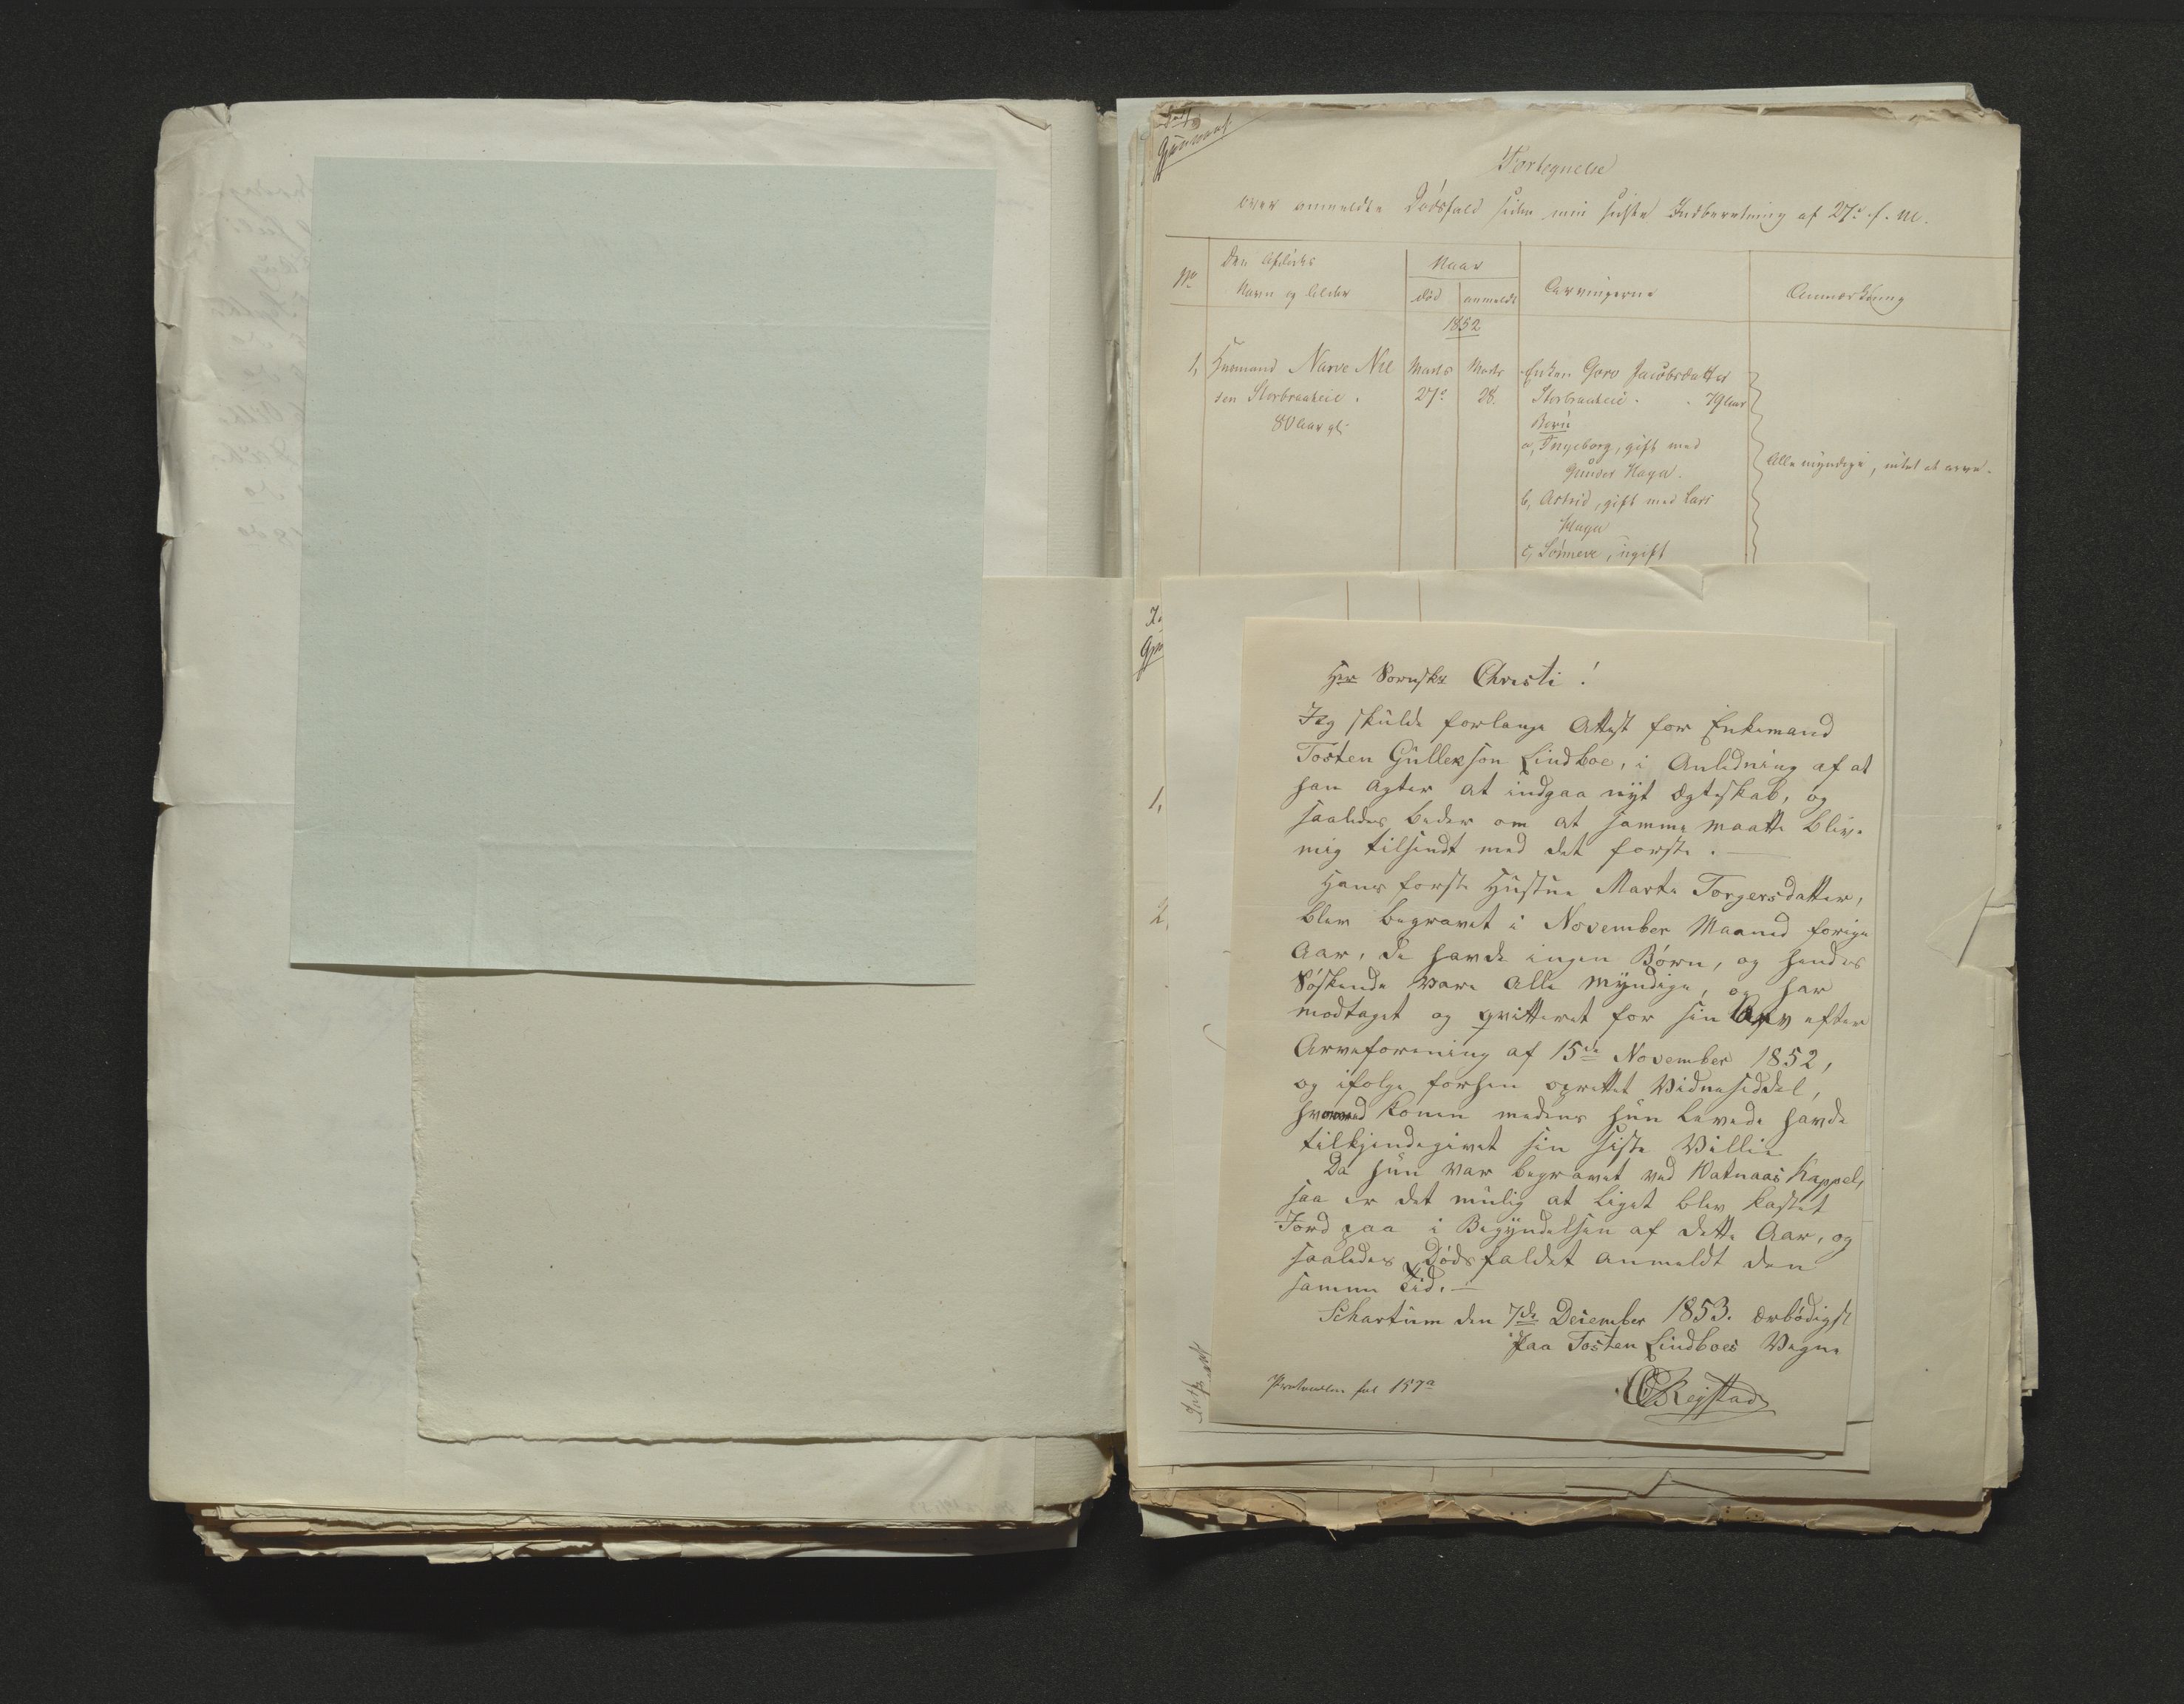 Fortegnelse
over anmeldte Dødsfald siden min sidste Indberetning af 27de f. M.
No
Den Afdødes
Navn og Alder
Naar
død
anmeldt
Arvingerne
Anmærkning
1852
1, Huusmand Narve Niel
sen Storbraateie.
80 Aar gl.
Marts
27de
Marts
28.
Enken Goro Jacobsdatter
Storbraateie. 79 Aar
Børn
a, Ingeborg, gift med
Gunder Haga.
b, Astrid, gift med Lars
Haga
c, Sønneve, ugift
Alle myndige, intet at arve.
1,
2,
Hr Sornskr Christi!
Jeg skulde forlange Attest for Enkemand
Tosten Gulleksøn Lindboe, i Anledning af at
han agter at indgaa nyt Ægteskab, og
saaledes beder om at samme maatte blive
mig tilsendt med det første. —
Hans første Hustrue Marte Torgersdatter,
blev begravet i November Maaned forige
Aar, de havde ingen Børn, og hendes
Søskende vare alle Myndige, og har
modtaget og qvitteret for sin Arv efter
Arveforening af 15de November 1852,
og ifølge forhen oprettet Vidneseddel,
hvorved Konen medens hun levede havde
tilkjendegivet sin siste Villie
Da hun var begravet ved Watnaas Kappel,
saa er det mulig at Liget blev kastet
Jord paa i Begyndelsen af dette Aar, og
saaledes Dødsfaldet anmeldt den
samme Tid. —
Schartum den 7de December 1853. Ærbødigst
Paa Tosten Lindboes Vegne
Regstad
Protocollen fol 157a